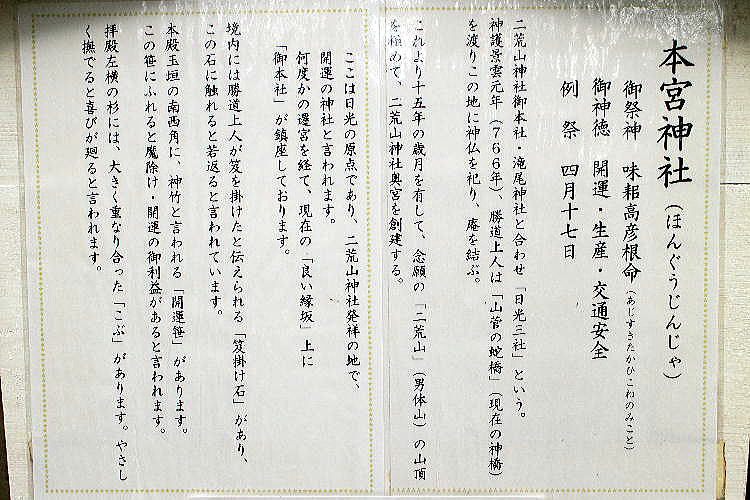 本宮神社（ほんぐうじんじゃ）
御祭神　味耜高彦根命（あじすきたかひこねのみこと）
御神徳　開運・生産・交通安全
例祭　四月十七日
二荒山神社御本社・滝尾神社と合わせ「日光三社」という。
神護景雲元年（７６６年）、勝道上人は「山菅の蛇橋」（現在の神橋）
を渡りこの地に神仏を祀り、庵を結ぶ。
これより十五年の歳月を有して、念願の「二荒山」（男体山）の山頂
を極めて、二荒山神社奥宮を創建する。
ここは日光の原点であり、二荒山神社発祥の地で、
開運の神社と言われます。
何度かの遷宮を経て、現在の「良い縁坂」上に
「御本社」が鎮座しております。
境内には勝道上人が笈を掛けたと伝えられる「笈掛け石」があり、
この石に触れると若返ると言われています。
本殿玉垣の南西角に、神竹と言われる「開運笹」があります。
この笹にふれると魔除け・開運の御利益があると言われます。
拝殿左横の杉には、大きく重なり合った「こぶ」があります。やさし
く撫でると喜びが廻ると言われます。